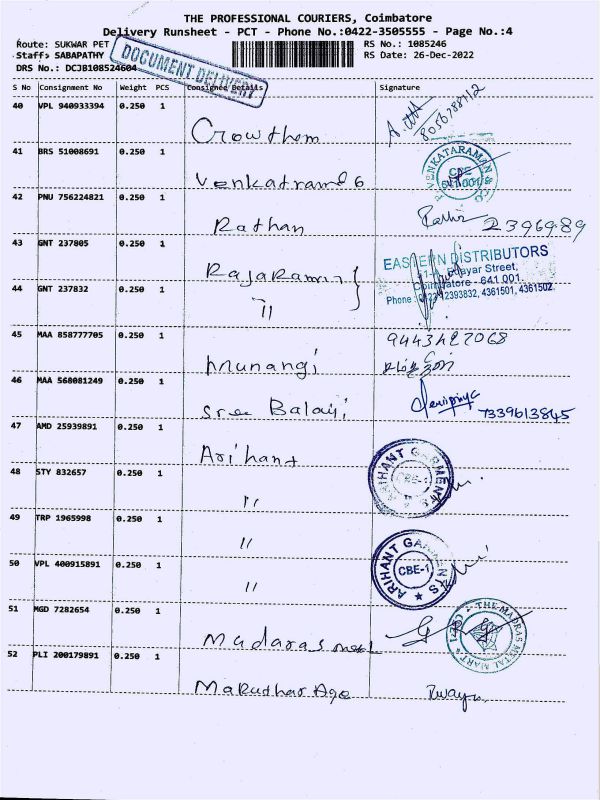 THE PROFESSIONAL COURIERS, Coimbatore
Delivery Runsheet - PCT - Phone No.:0422-3505555 - Page No.:4
Route: SUKWAR PET
RS No.: 1085246
Staff: SABAPATHY
RS Date: 26-Dec-2022
DRS No.: DCJB108524604
DOCUMENT DELIVERY
S No Consignment No Weight PCS Consignee Details Signature
40 VPL 940933394 0.250 1
Crowthem
41 BRS 51008691 0.250 1
VENKATARAMAN & CO
CBE
Venkatraman 6
42 PNU 756224821 0.250 1
Rathan
2396989
43 GNT 237805 0.250 1
EASTERN DISTRIBUTORS
Street,
Coimbatore - 641 001.
Phone : 0422 2393832, 4361501, 4361502
44 GNT 237832 0.250 1
"
45 MAA 858777705 0.250 1
9443427068
Munangi
46 MAA 568081249 0.250 1
Sree Balaji
7339613845
47 AMD 25939891 0.250 1
Arihant
48 STY 832657 0.250 1
ARIHANT GARMENTS
CBE-1
"
49 TRP 1965998 0.250 1
"
50 VPL 400915891 0.250 1
ARIHANT GARMENTS
CBE-1
"
51 MGD 7282654 0.250 1
THE MADRAS METAL MART
Madaras metal
52 PLI 200179891 0.250 1
Marudhar Age